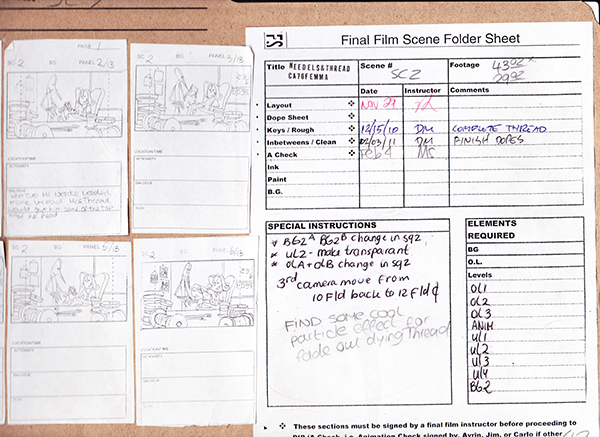 PAGE 1
SC 2 BG PANEL 2/13
LOCATION/TIME
ACTION/SFX
DIALOGUE
whenever his Needle needed
more thread His Thread
would give him some of the
SC 2 BG PANEL 3/13
LOCATION/TIME
ACTION/SFX
DIALOGUE
SLUG
SC 2 BG PANEL 5/13
LOCATION/TIME
ACTION/SFX
DIALOGUE
SC 2 BG PANEL 6/13
LOCATION/TIME
ACTION/SFX
DIALOGUE
FS
Final Film Scene Folder Sheet
Title NEEDELS&THREAD
CA70FEMMA
Scene #
SC2
Footage 43 02
29 02
Date Instructor Comments
Layout Nov 29
Dope Sheet
Keys / Rough 12/15/10 DM COMPLETE THREAD
Inbetweens / Clean 02/03/11 DM FINISH DOPES
A Check Feb 4 MS
Ink
Paint
B.G.
SPECIAL INSTRUCTIONS
* BG2A BG2B change in sq2
* UL2 - make transparant
* OLA + OLB change in sq2
3rd camera move from
10 Fld back to 12 Fld
FIND SOME COOL
particle effect for
fade out dying Thread
ELEMENTS
REQUIRED
BG
O.L.
Levels
OL1
OL2
OL3
ANIM
UL1
UL2
UL3
UL4
BG2
These sections must be signed by a final film instructor before proceeding to
i.e. Animation Check signed by, Avrin, Jim, or Carlo if other